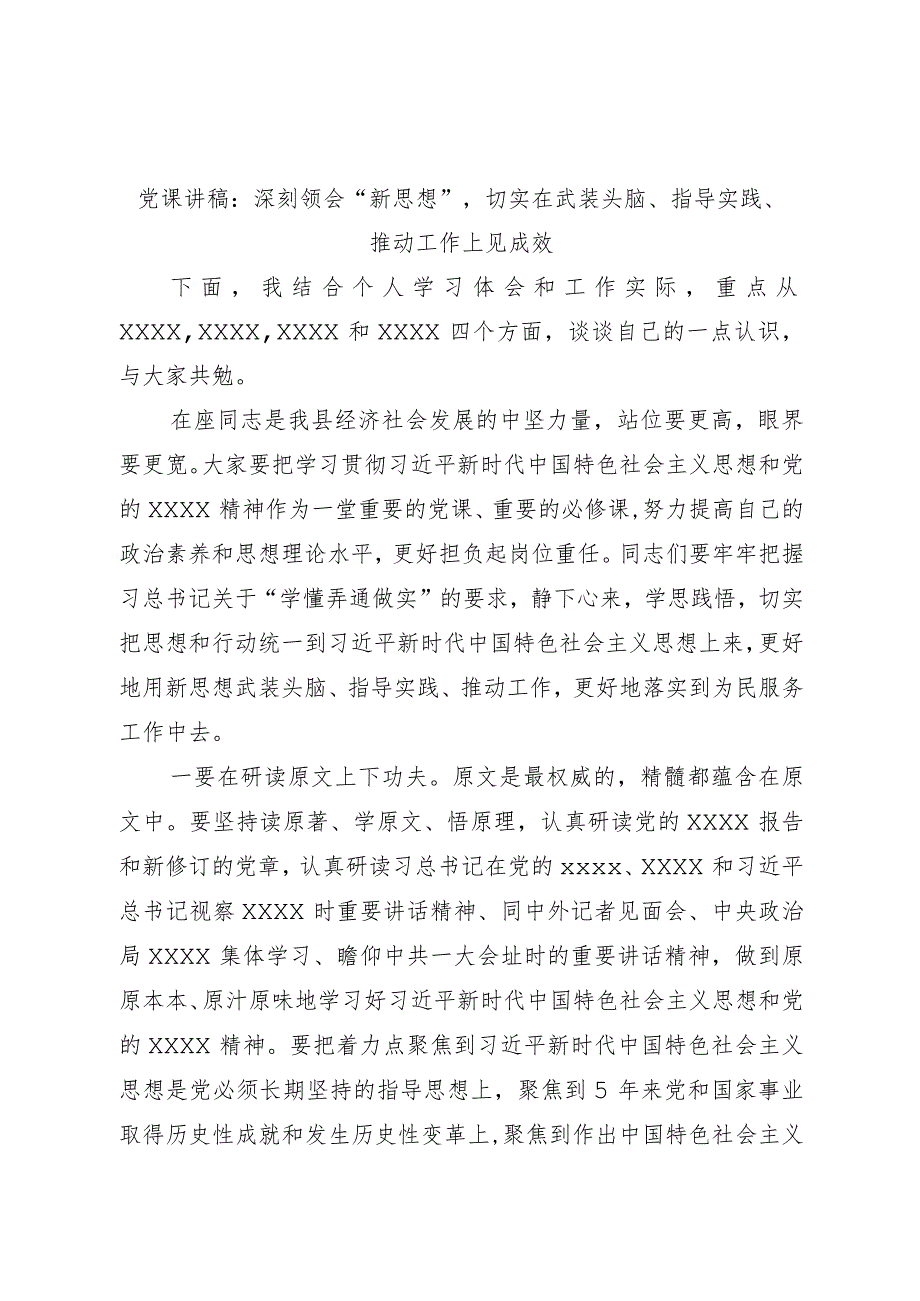 党课讲稿：深刻领会“新思想”，切实在武装头脑、指导实践、
推动工作上见成效
下面，我结合个人学习体会和工作实际，重点从
XXXX,XXXX,XXXX 和 XXXX 四个方面，谈谈自己的一点认识，
与大家共勉。
在座同志是我县经济社会发展的中坚力量，站位要更高，眼界
要更宽。大家要把学习贯彻习近平新时代中国特色社会主义思想和党
的 XXXX 精神作为一堂重要的党课、重要的必修课,努力提高自己的
政治素养和思想理论水平，更好担负起岗位重任。同志们要牢牢把握
习总书记关于“学懂弄通做实”的要求，静下心来，学思践悟，切实
把思想和行动统一到习近平新时代中国特色社会主义思想上来,更好
地用新思想武装头脑、指导实践、推动工作，更好地落实到为民服务
工作中去。
一要在研读原文上下功夫。原文是最权威的，精髓都蕴含在原
文中。要坚持读原著、学原文、悟原理，认真研读党的 XXXX 报告
和新修订的党章，认真研读习总书记在党的 xxxx、XXXX 和习近平
总书记视察 XXXX 时重要讲话精神、同中外记者见面会、中央政治
局 XXXX 集体学习、瞻仰中共一大会址时的重要讲话精神，做到原
原本本、原汁原味地学习好习近平新时代中国特色社会主义思想和党
的 XXXX 精神。要把着力点聚焦到习近平新时代中国特色社会主义
思想是党必须长期坚持的指导思想上，聚焦到 5 年来党和国家事业
取得历史性成就和发生历史性变革上,聚焦到作出中国特色社会主义